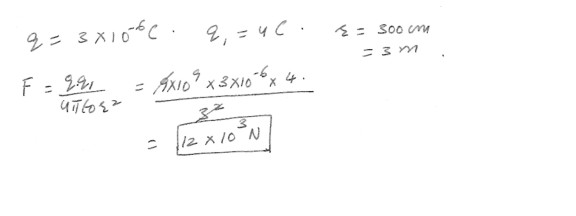 q = 3 x 10⁻⁶ C . q₁ = 4 C . r = 300 cm
= 3 m .
F = qq₁ / 4π∈₀r² = 9x10⁹ x 3x10⁻⁶ x 4 . / 3²
= 12 x 10³ N